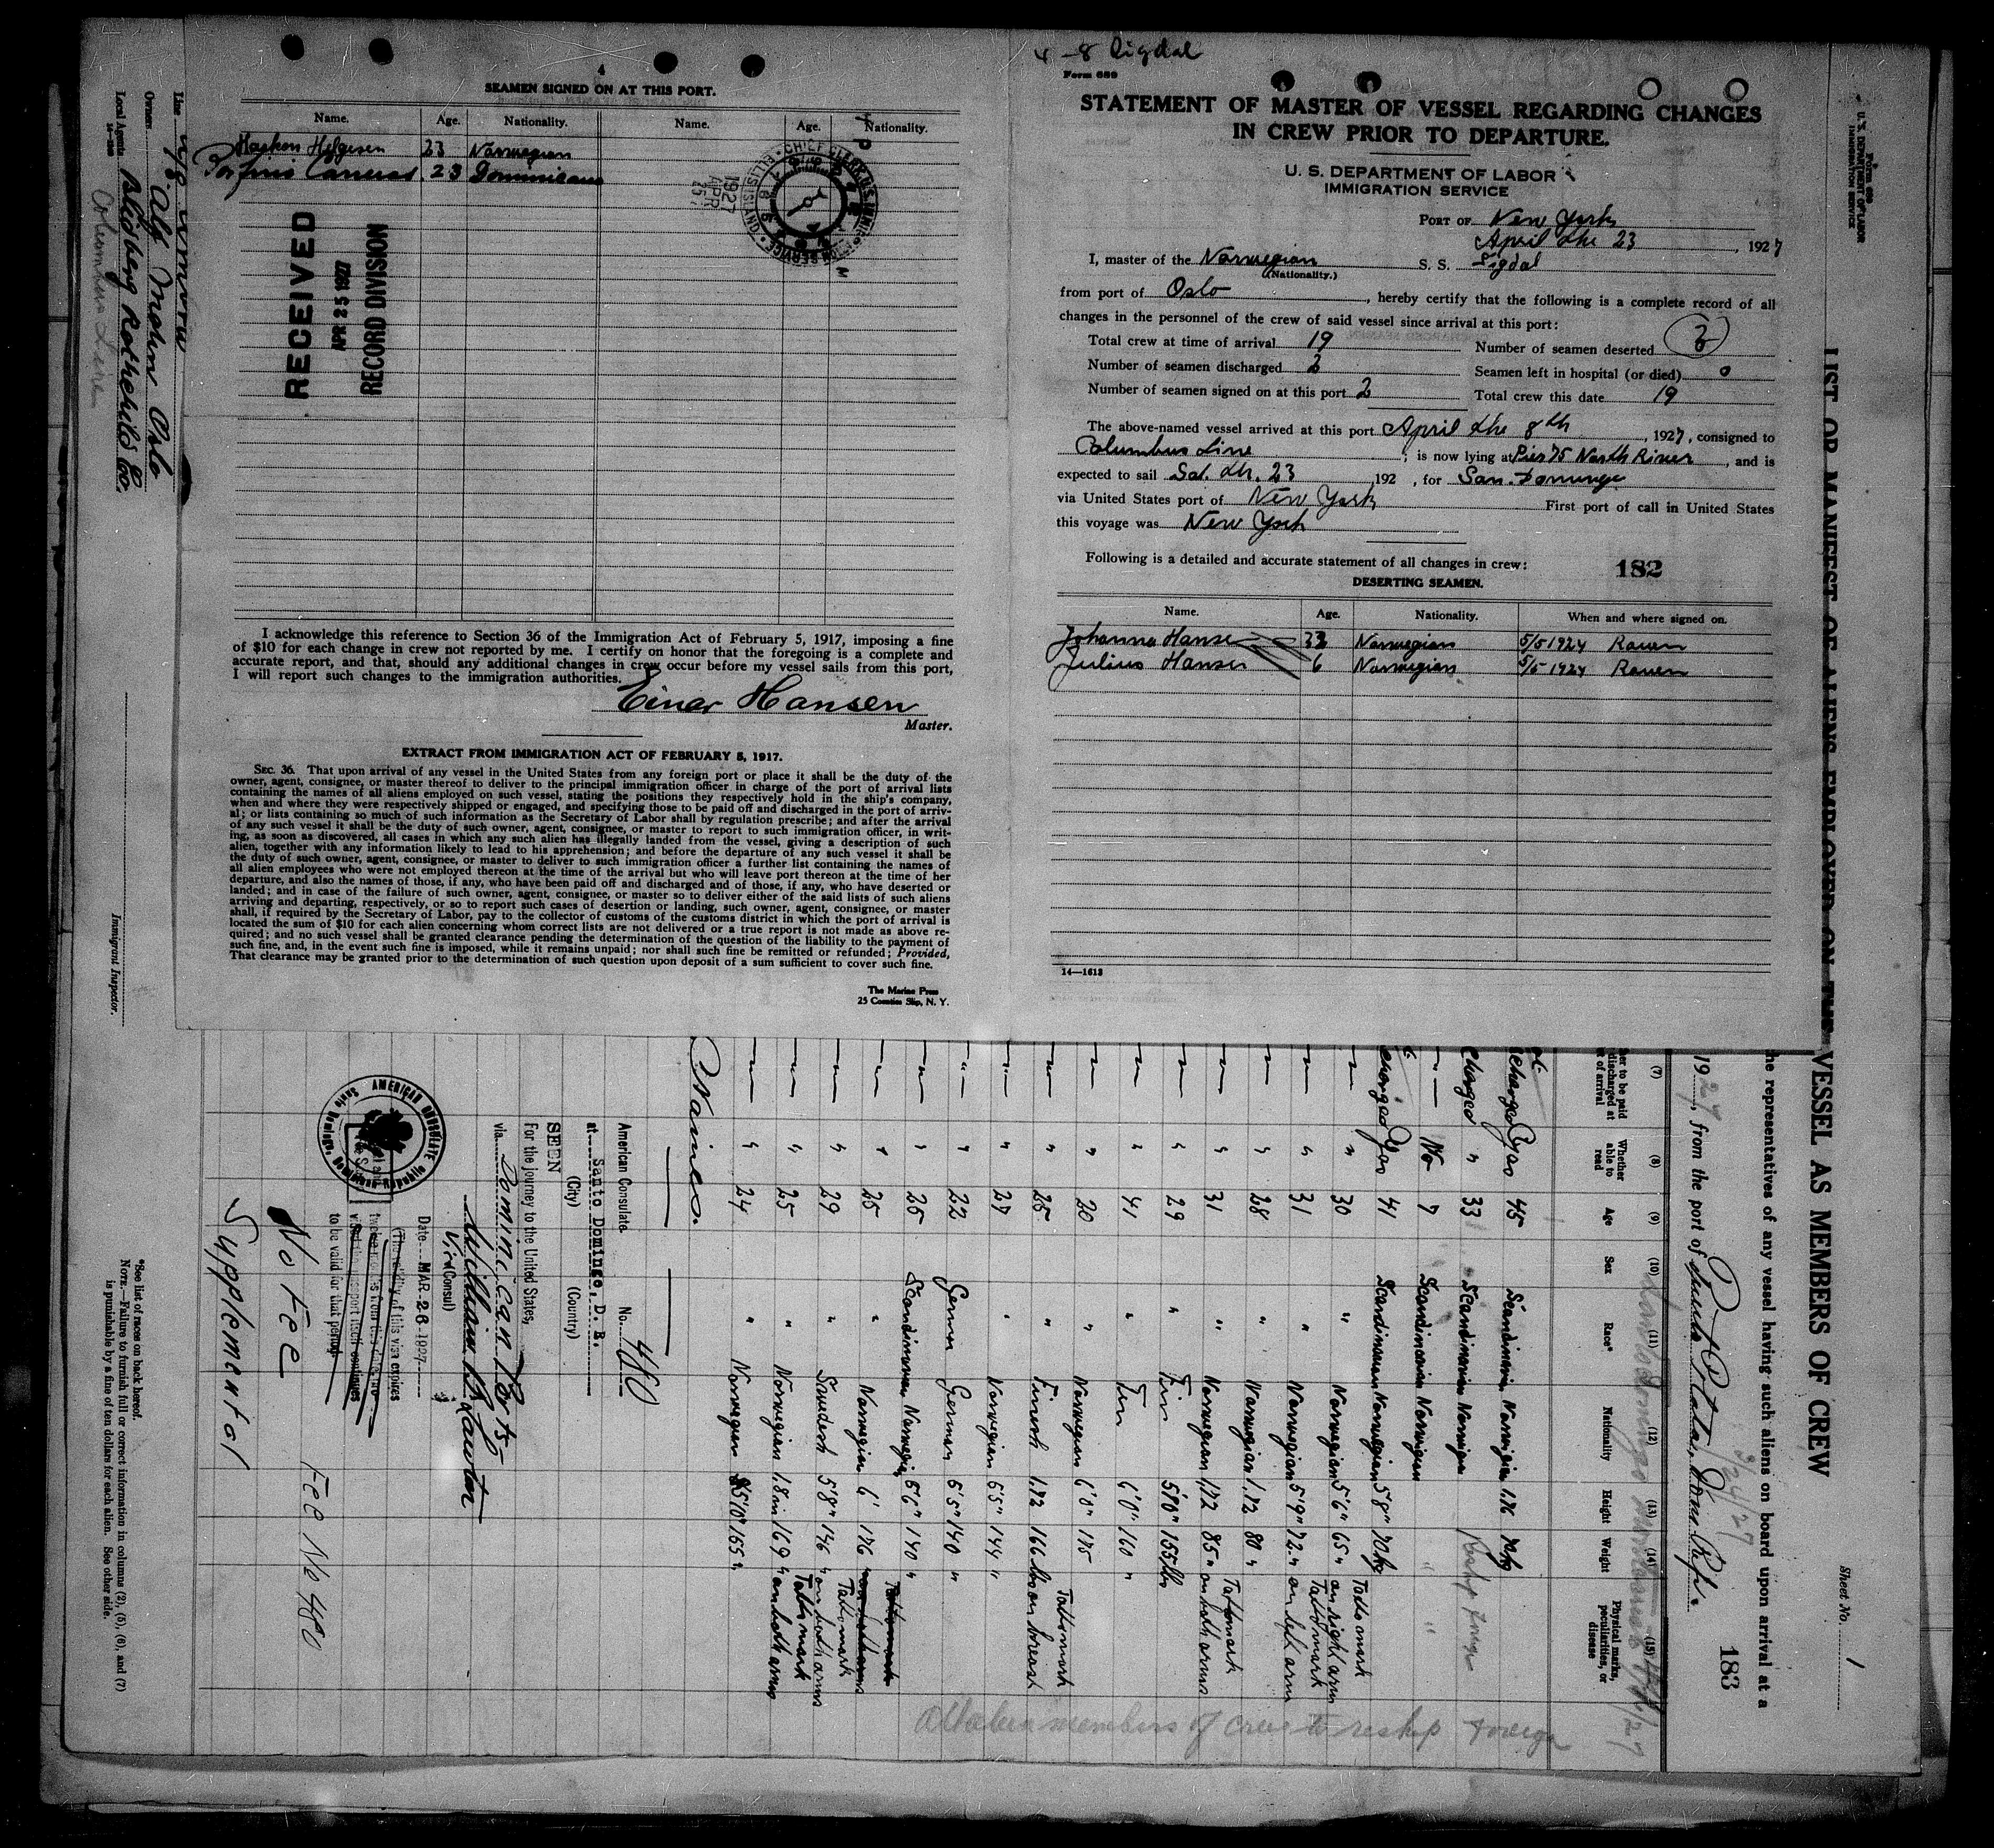 4
SEAMEN SIGNED ON AT THIS PORT.
Name. Age. Nationality. Name. Age. Nationality.
Haakon Helgesen 23 Norwegian
Porfirio Carreras. 23 Dominicano
RECEIVED
APR 25 1927
RECORD DIVISION
1927
APR
25
CHIEF CLERK U.S. IMMIGRATION SERVICE ELLIS ISLAND
I acknowledge this reference to Section 36 of the Immigration Act of February 5, 1917, imposing a fine
of $10 for each change in crew not reported by me. I certify on honor that the foregoing is a complete and
accurate report, and that, should any additional changes in crew occur before my vessel sails from this port,
I will report such changes to the immigration authorities.
Einar Hansen
Master.
EXTRACT FROM IMMIGRATION ACT OF FEBRUARY 5, 1917.
SEC. 36. That upon arrival of any vessel in the United States from any foreign port or place it shall be the duty of the
owner, agent, consignee, or master thereof to deliver to the principal immigration officer in charge of the port of arrival lists
containing the names of all aliens employed on such vessel, stating the positions they respectively hold in the ship's company,
when and where they were respectively shipped or engaged, and specifying those to be paid off and discharged in the port of arriv-
al; or lists containing so much of such information as the Secretary of Labor shall by regulation prescribe; and after the arrival
of any such vessel it shall be the duty of such owner, agent, consignee, or master to report to such immigration officer, in writ-
ing, as soon as discovered, all cases in which any such alien has illegally landed from the vessel, giving a description of such
alien, together with any information likely to lead to his apprehension; and before the departure of any such vessel it shall be
the duty of such owner, agent, consignee, or master to deliver to such immigration officer a further list containing the names of
all alien employees who were not employed thereon at the time of the arrival but who will leave port thereon at the time of her
departure, and also the names of those, if any, who have been paid off and discharged and of those, if any, who have deserted or
landed; and in case of the failure of such owner, agent, consignee, or master so to deliver either of the said lists of such aliens
arriving and departing, respectively, or so to report such cases of desertion or landing, such owner, agent, consignee, or master
shall, if required by the Secretary of Labor, pay to the collector of customs of the customs district in which the port of arrival is
located the sum of $10 for each alien concerning whom correct lists are not delivered or a true report is not made as above re-
quired; and no such vessel shall be granted clearance pending the determination of the question of the liability to the payment of
such fine, and, in the event such fine is imposed, while it remains unpaid; nor shall such fine be remitted or refunded; Provided,
That clearance may be granted prior to the determination of such question upon deposit of a sum sufficient to cover such fine.
The Marine Press
25 Coenties Slip, N. Y.
4 - 8 Sigdal
Form 689
STATEMENT OF MASTER OF VESSEL REGARDING CHANGES
IN CREW PRIOR TO DEPARTURE.
U. S. DEPARTMENT OF LABOR
IMMIGRATION SERVICE
PORT OF New York
April the 23, 1927
I, master of the Norwegian S. S. Sigdal
(Nationality.)
from port of Oslo, hereby certify that the following is a complete record of all
changes in the personnel of the crew of said vessel since arrival at this port:
Total crew at time of arrival 19 Number of seamen deserted
Number of seamen discharged 2 Seamen left in hospital (or died) 0
Number of seamen signed on at this port 2 Total crew this date 19
The above-named vessel arrived at this port April the 8th, 1927, consigned to
Columbus Line; is now lying at Pier 75 North River, and is
expected to sail Sat. th. 23 192 , for San Domingo
via United States port of New York First port of call in United States
this voyage was New York
Following is a detailed and accurate statement of all changes in crew: 182
DESERTING SEAMEN.
Name. Age. Nationality. When and where signed on.
Johanna Hansen 33 Norwegian 5/5 1924 Rouen
Julius Hansen 6 Norwegian 5/5 1924 Rouen
14—1613
Form 689
U. S. DEPARTMENT OF LABOR
IMMIGRATION SERVICE
LIST OR MANIFEST OF ALIENS EMPLOYED ON THE VESSEL AS MEMBERS OF CREW
Sheet No. 1
the representatives of any vessel having such aliens on board upon arrival at a
183
1927, from the port of Puerto Plata, Dom. Rep.
3/24/27
(7) (8) (9) (10) (11) (12) (13) (14) (15)
Whether able to read Age Sex Race* Nationality Height Weight Physical marks, peculiarities, or disease
Yes 45 Scandinavian Norwegian 1.76 70 kg
" 33 Scandinavian Norwegian Reship Foreign
No 7 Scandinavian Norwegian " "
Yes 41 Scandinavian Norwegian 5'8" 70 kg
" 30 " Norwegian 5'6" 65 " Tattomark on right arm
" 31 " Norwegian 5'9" 72 " Tattomark on left arm
" 28 Norwegian 1.72 80 "
" 31 " Norwegian 1,72 85 " Tattomark on both arms
" 29 " Fin 5'10" 155 lbs
" 41 " Fin 6'0" 160 "
" 20 " Norwegian 6'0" 175
" 25 " Finish 1.72 166 lbs Tattomark on breast
" 27 " Norwegian 5'5" 144 "
" 22 German German 5'5" 140 "
" 25 Scandinavian Norwegian 5'6" 140 "
" 25 " Norwegian 6' 176 "
" 29 " Swedish 5'8" 146 " Tattomark on both arms
" 25 " Norwegian 1.8 m 169 " Tattomark on both arms
" 24 " Norwegian 5'10" 155 "
American Consulate No. 480
at Santo Domingo, D. R.
(City) (Country)
SEEN
For the journey to the United States,
via Dominican Ports
William B Lawton
Vice (Consul)
Date MAR 26 1927
(The validity of this visa expires
twelve months from this date, no
to be valid for that period.
AMERICAN CONSULATE
Santo Domingo, Dominican Republic
No Fee Fee No 480
Supplemental
*See list of races on back hereof.
NOTE.—Failure to furnish full or correct information in columns (2), (5), (6), and (7)
is punishable by a fine of ten dollars for each alien. See other side.
All alien members of crew to reship foreign
Line
Owners Alf Mohn Oslo
Local Agents Bleidberg Rothchild Co.
14—
Columbus Line
Immigrant Inspector.